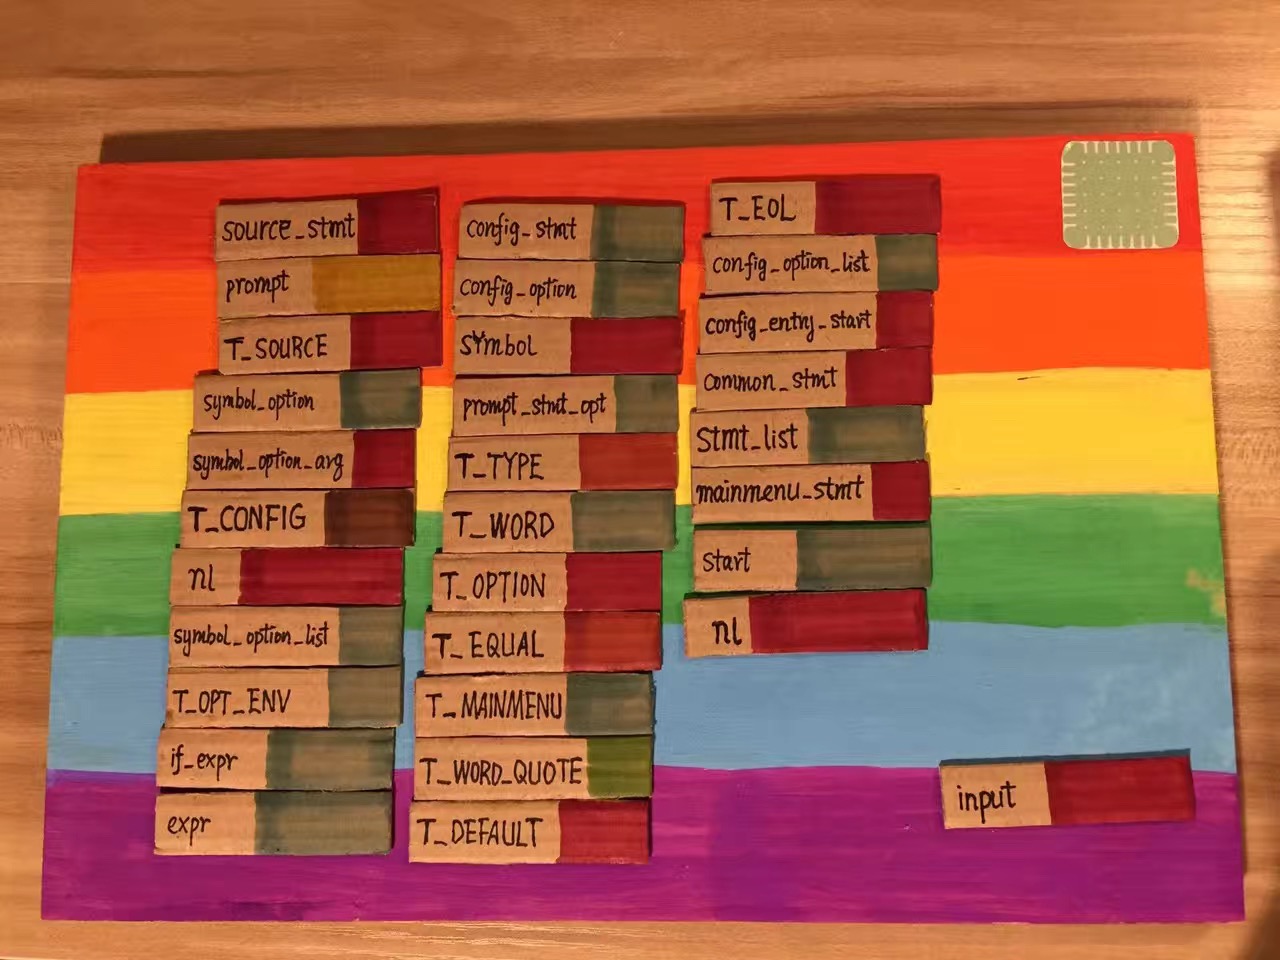 source_stmt
prompt
T_SOURCE
symbol_option
symbol_option_arg
T_CONFIG
nl
symbol_option_list
T_OPT_ENV
if_expr
expr
config_stmt
config_option
symbol
prompt_stmt_opt
T_TYPE
T_WORD
T_OPTION
T_EQUAL
T_MAINMENU
T_WORD_QUOTE
T_DEFAULT
T_EOL
config_option_list
config_entry_start
common_stmt
stmt_list
mainmenu_stmt
start
nl
input